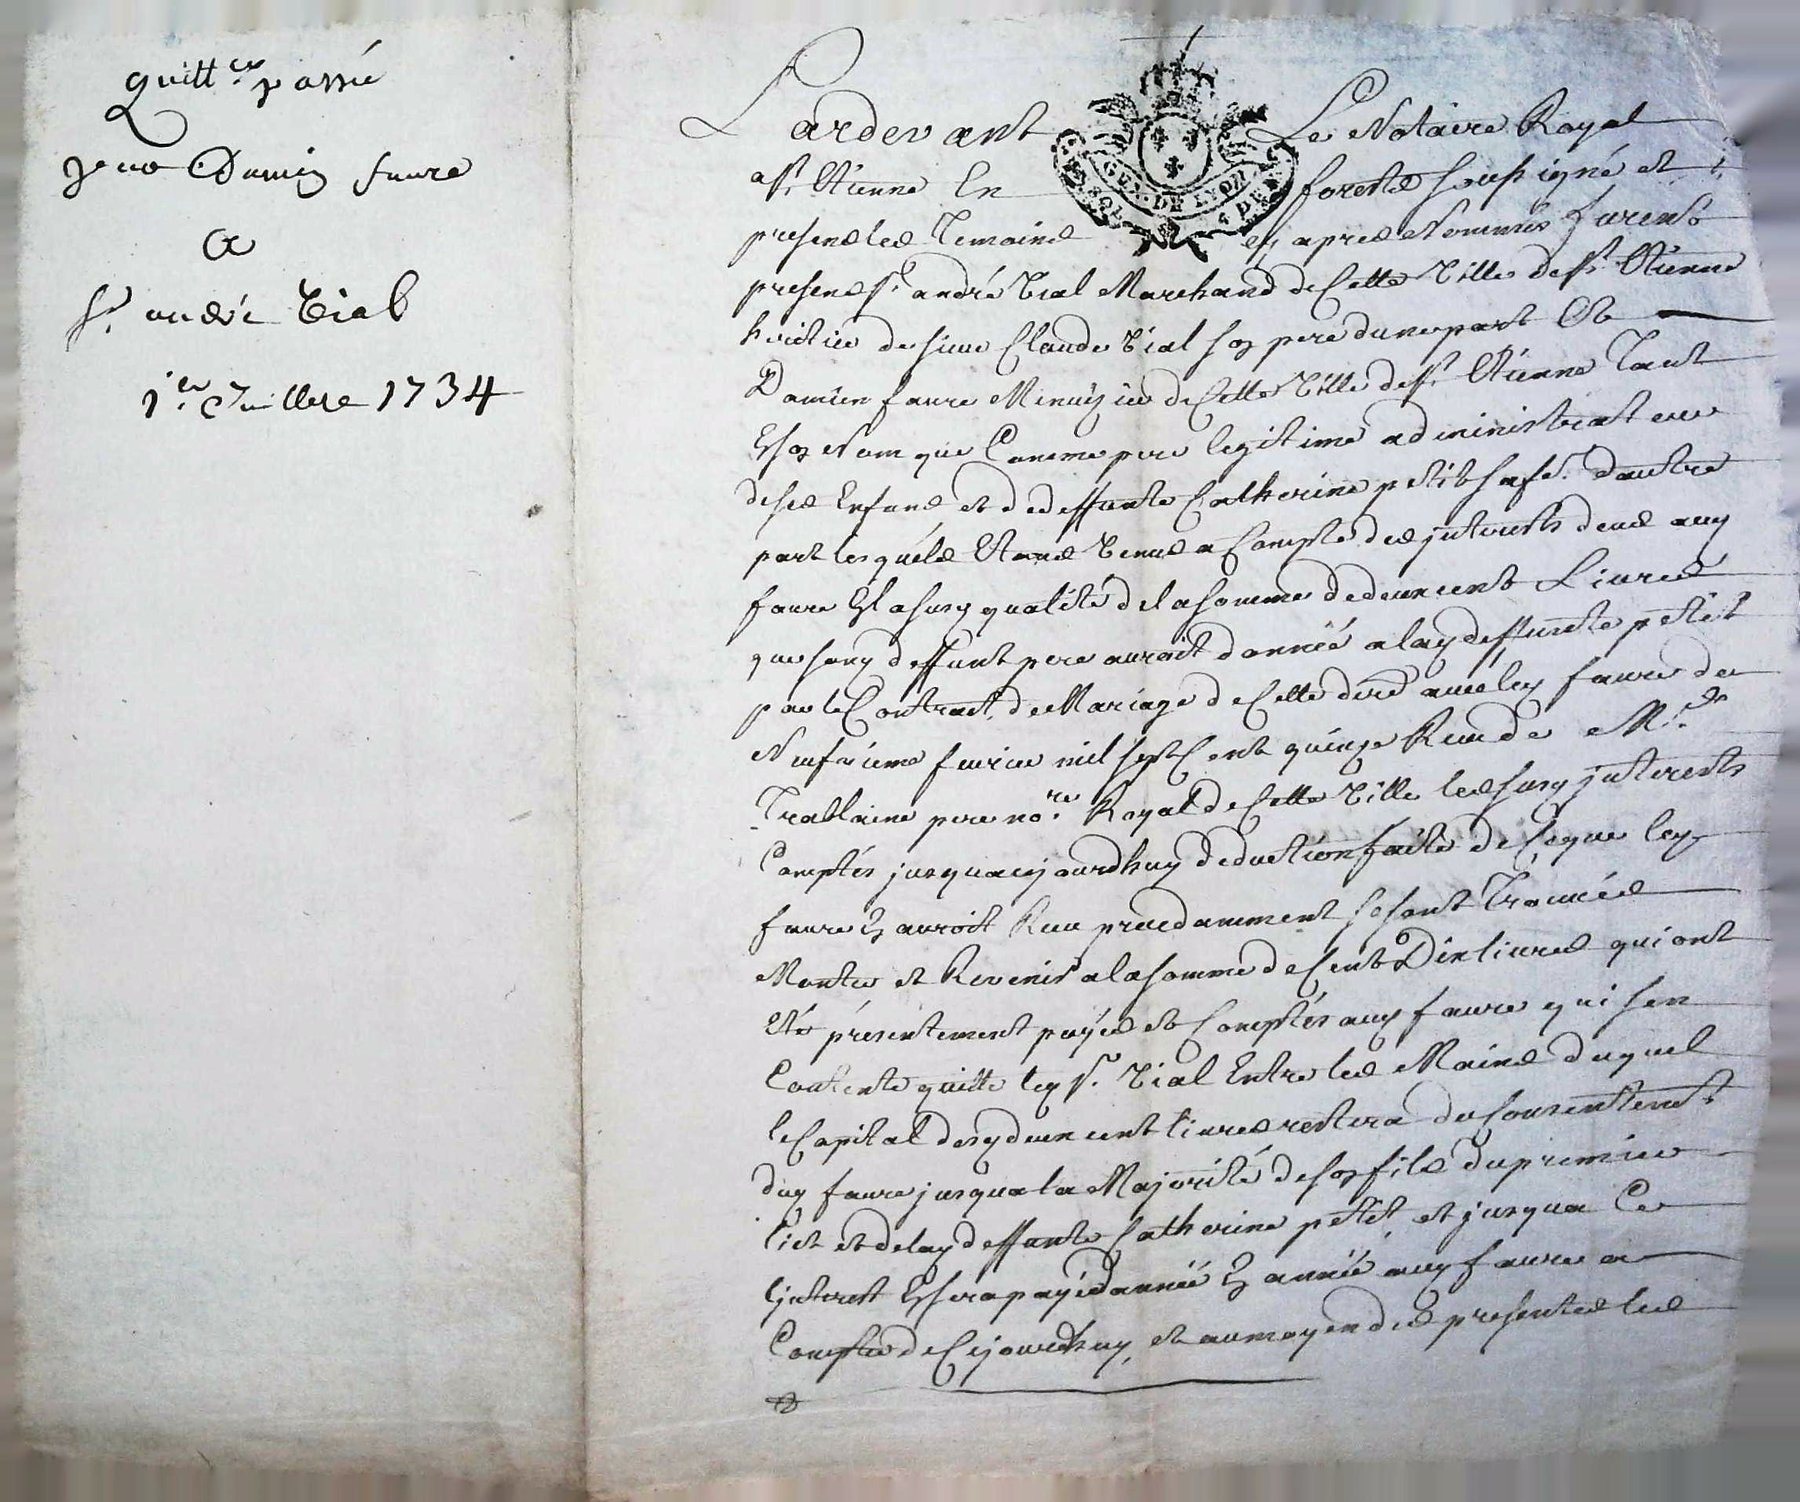 Quitt.ce passé
par Damien faure
a
Sr. andré Vial
1.er Juillere 1734
Pardevant Le Notaire Royal
a St. Etienne En forests soussigné et
presens les Temoins cy apres Nommés furent
presens Sr. andré Vial Marchand de Cette Ville de St. Etienne
heritier de sieur Claude Vial son pere dune part Et
Damien faure Menuizier de Cette Ville de St. Etienne Tant
En son Nom que Comme pere legitime administrateur
de ses Enfans et de deffunte Catherine petit sa fe. dautre
part lesquels Etans Venus a Compte des jnterests deus aud
faure En la susd qualité de la somme de deux cent Livres
que son d deffunt pere auroit donnée a lad deffuncte petit
par le Contract de Mariage de Cette dere avec led faure du
Neufvieme feurier mil sept Cent quinze Receu de M.e
Trablaine pere no.re Royal de Cette Ville les susd jnterests
Comptés jusqua cejourdhuy deduction faite de Ce que led
faure En auroit Receu precedamment se sont Trouvés
Monter et Revenir a la somme de Cent Dix livres qui ont
Eté présentement payés et Comptés aud faure qui sen
Contente quitte led Sr. Vial Entre les Mains duquel
le Capital desd deux cent livres restera du Consentement
dud faure jusqua la Majorité de son fils du premier
lict et de lad deffunte Catherine petit, et jusqua Ce
ljnterest En sera payé dannée En année aud faure a
Compter de Cejourdhuy, et au moyen des presentes les